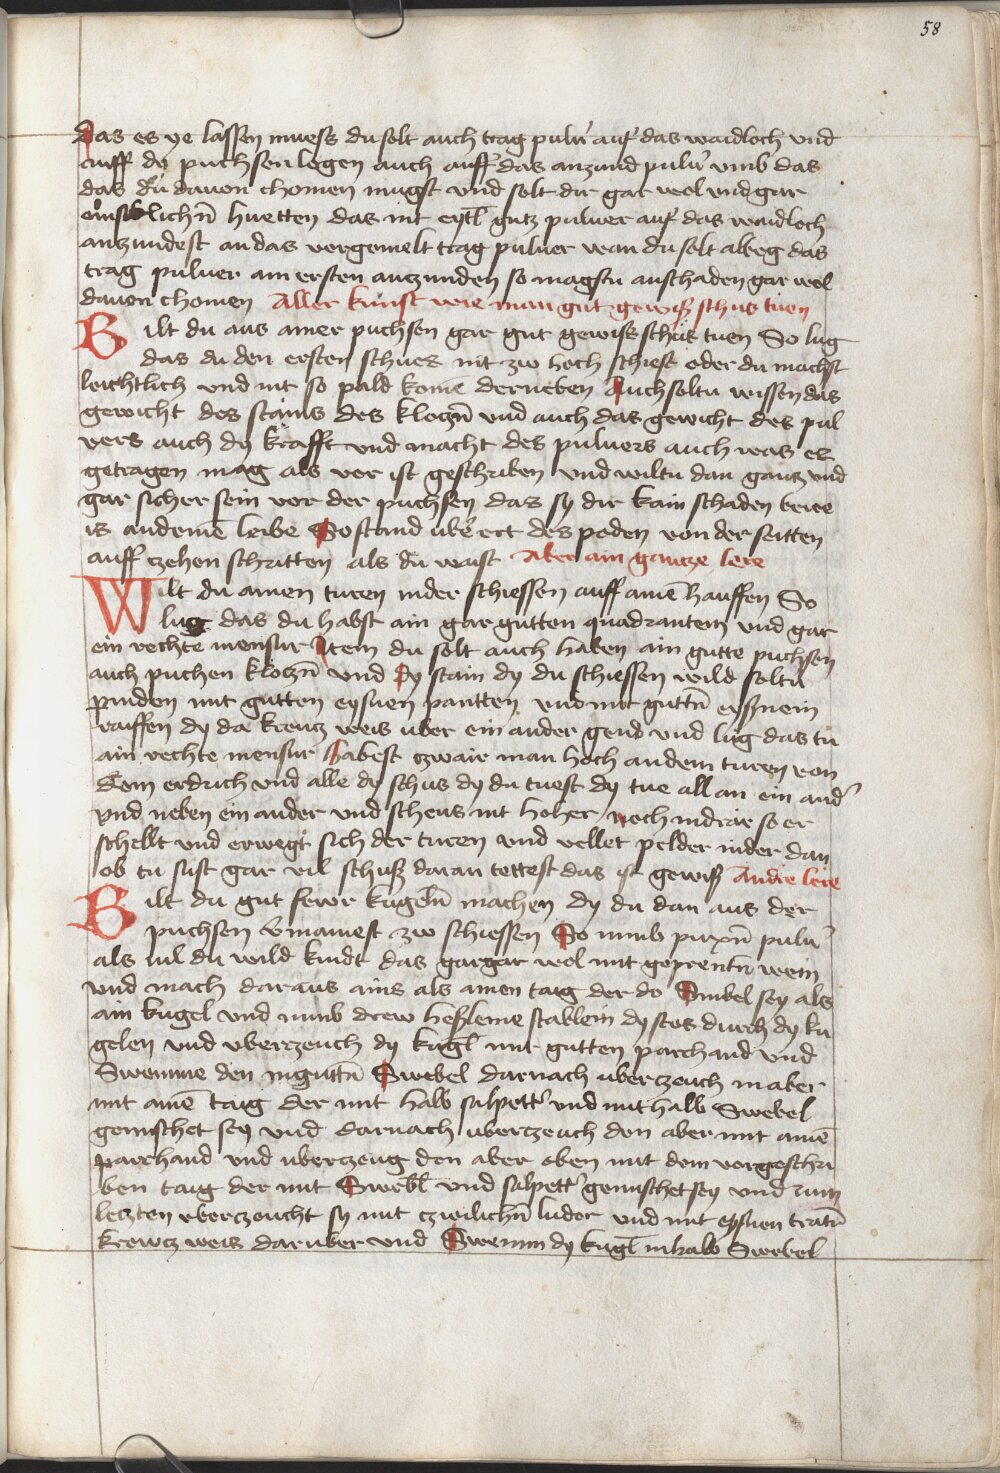 58
das es ye lassen muess du solt auch trag pulu' auf das waidloch vnd
auff dy puchsen legen auch auff das anzund pulu' vmb das
das du dauon chomen mugst vnd solt dir gar wol vnd gar
lichn̄ huetten das nit eytl gutz puluer auf das waidloch
antzundest an das vorgemelt trag puluer wan du solt albeg das
trag puluer am ersten antzunden so magstu anschaden gar wol
dauon chomen Aller kunst wie man gut gewiß schus tuen
Wilt du aus ainer puchsen gar gut gewiss schus tuen So lug
das du den ersten schues nit zw hoch schiest oder du machst
leichtlich vnd nit so pald komē derneben Auch soltu wissen das
gewicht des stains des klotzn̄ vnd auch das gewicht des pul
vers auch dy krafft vnd macht des puluers auch was es
getragen mag als vor ist geschriben vnd wiltu dan gantz vnd
gar sicher sein vor der puchsen das sy dir kain schaden
is an deinē leibe So stand vber ect des poden von der seitten
auff czehen schritten als du waist Aber ain gantze lere
Wilt du ainen turen nider schiessen auff ainē hauffen So
lug das du habst ain gar gutten quadranten vnd gar
ein rechte mensur Item du solt auch haben ain gutte puchsen
auch puchen klotzn̄ vnd dy stain dy du schiessen wild soltu
pinden mit gutten eysnen pantten vnd mit guttn̄ eysnein
raiffen dy da kreutz weis vber ein ander gend vnd lug das tu
ain rechte mensur habest czwair man hoch an dem turen von
dem erdrich vnd alle dy schus dy du tuest dy tue all an ein and'
vnd neben ein ander vnd scheus nit hoher noch nidrar so er
schellt vnd erwegt sich der turen vnd vellet pelder nider dan
ob tu sust gar vil schuß daran tettest das ist gewiß Andre lere
Wilt du gut fewr kugeln̄ machen dy du dan aus der
puchsen zw schiessen So nimb puxn̄ pulu'
als uil du wild kndt das gar gar wol mit geprentn̄ wein
vnd mach daraus ains als ainen taig der do Sinbel sey als
ain kugel vnd nimb drew hesleine stablein dy stos durch dy ku
gelen vnd vberczeuch dy kugl mit gutten parchand vnd
Swemme den in guttn̄ Swebel darnach vberczeuch in aber
mit ainē taig der mit halb salpett' vnd mit halb Swebel
gemischet sey vnd darnach vberczeuch den aber mit ainē
parchand vnd vberczeug den aber oben mit dem vorgeschri
ben taig der mit Swebl vnd salpett' gemischet sey vnd zum
letzten vberczeucht sy mit czwilichn̄ luder vnd mit eysnen tratn̄
krewcz weis daruber vnd Swemm dy kugl in halb Swebel